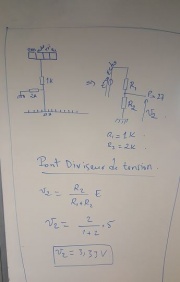 1K
2K
E
R₁
R₂
V₂
R₁ = 1K
R₂ = 2K
Pont Diviseur de tension.
V₂ = R₂ / (R₁+R₂) E
V₂ = 2 / (1+2) . 5
V₂ = 3,33V